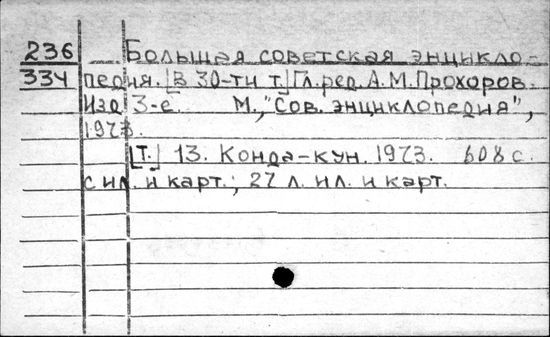 236 Большая советская энцикло-
334 педия. [В 30-ти т.] Гл. ред. А.М. Прохоров.
Изд. 3-е. М., "Сов. энциклопедия",
1973.
[Т.] 13. Конда-кун. 1973. 608 с.
с ил. и карт.; 27 л. ил. и карт.